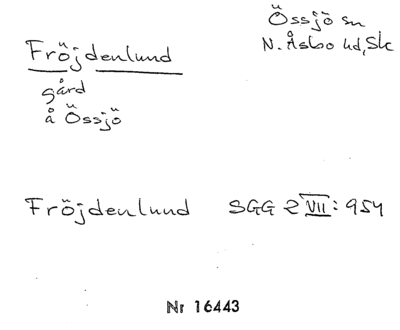 Össjö sn
N. Åsbo hd, Sk
Fröjdenlund
gård
å Össjö
Fröjdenlund SGG 2 VII: 954
Nr 16443